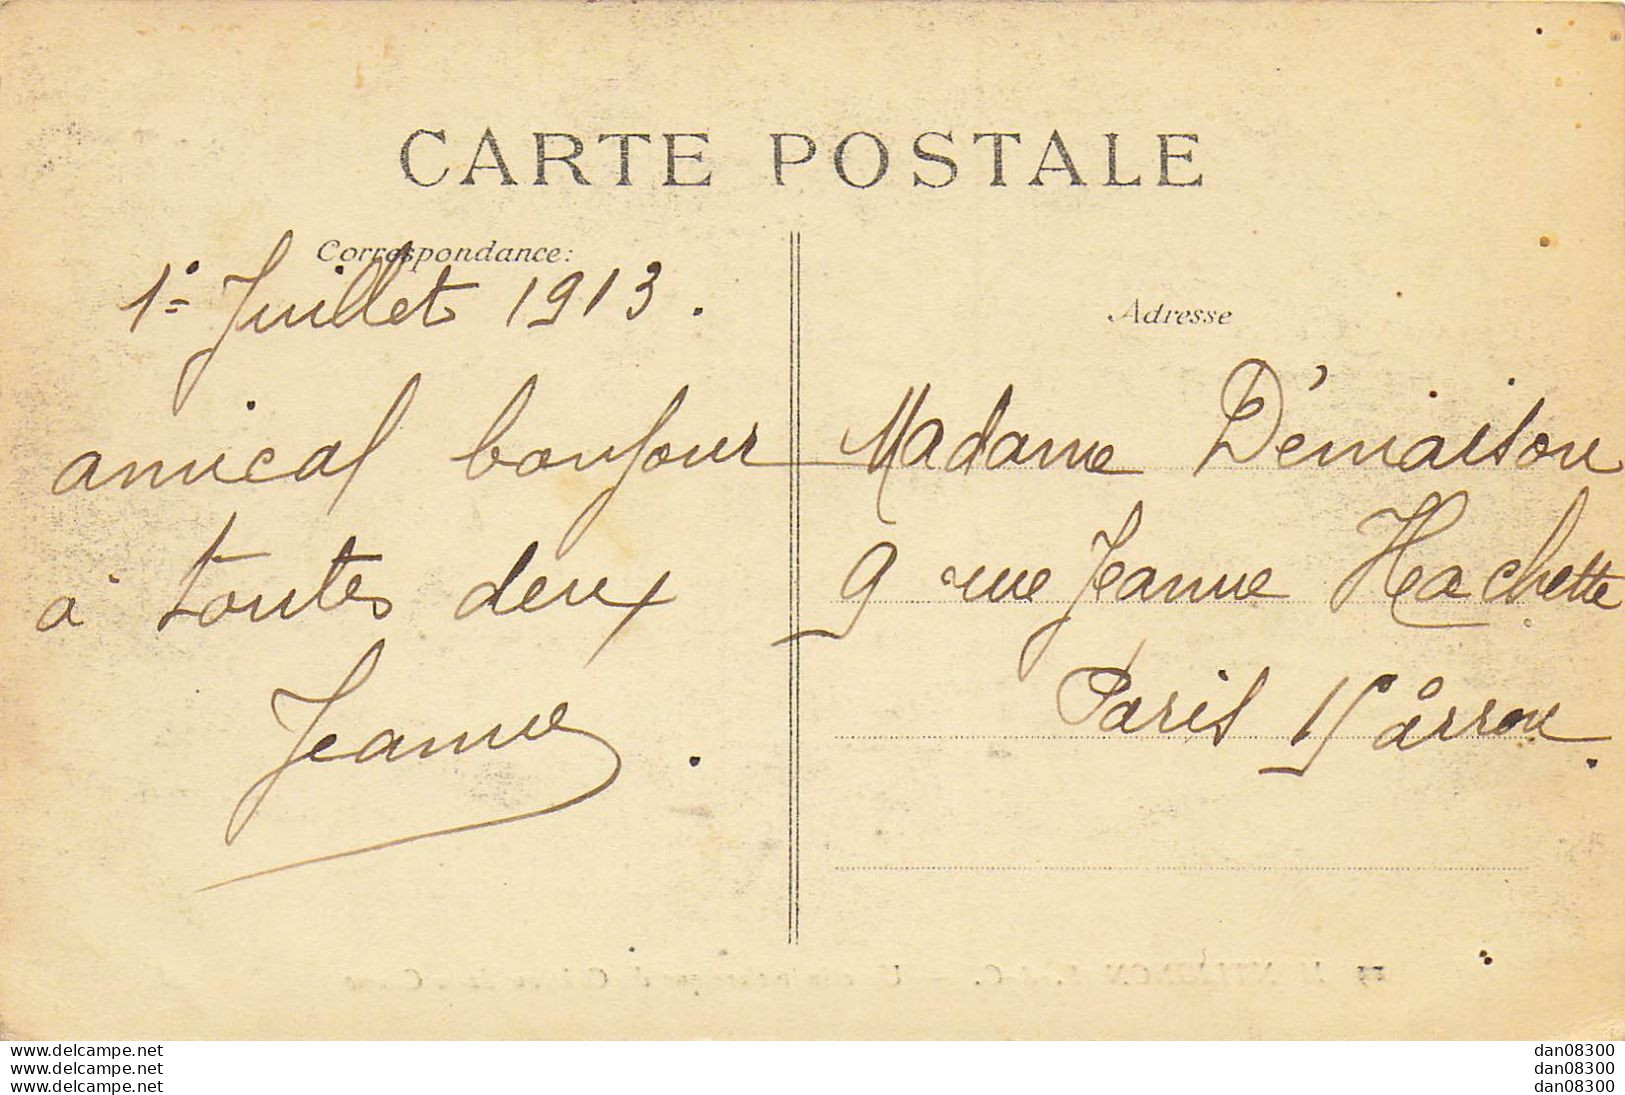 CARTE POSTALE
Correspondance:
1º Juillet 1913.
amical bonjour
à toutes deux
Jeanne.
Adresse
Madame Démaison
9 rue Jeanne Hachette
Paris 15 arron.
www.delcampe.net
www.delcampe.net
www.delcampe.net
dan08300
dan08300
dan08300